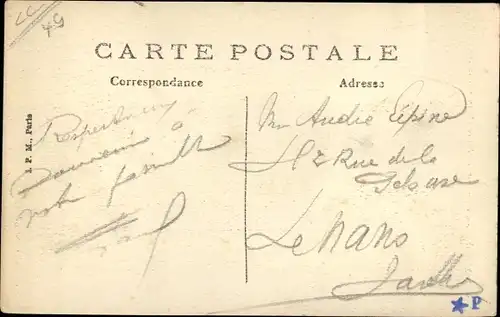 49
CARTE POSTALE
Correspondance
Adresse
I. P. M., Paris
Respectueux
souvenir à
votre famille
Mr André Lépine
Rue de la
Le Mans
Sarthe
P